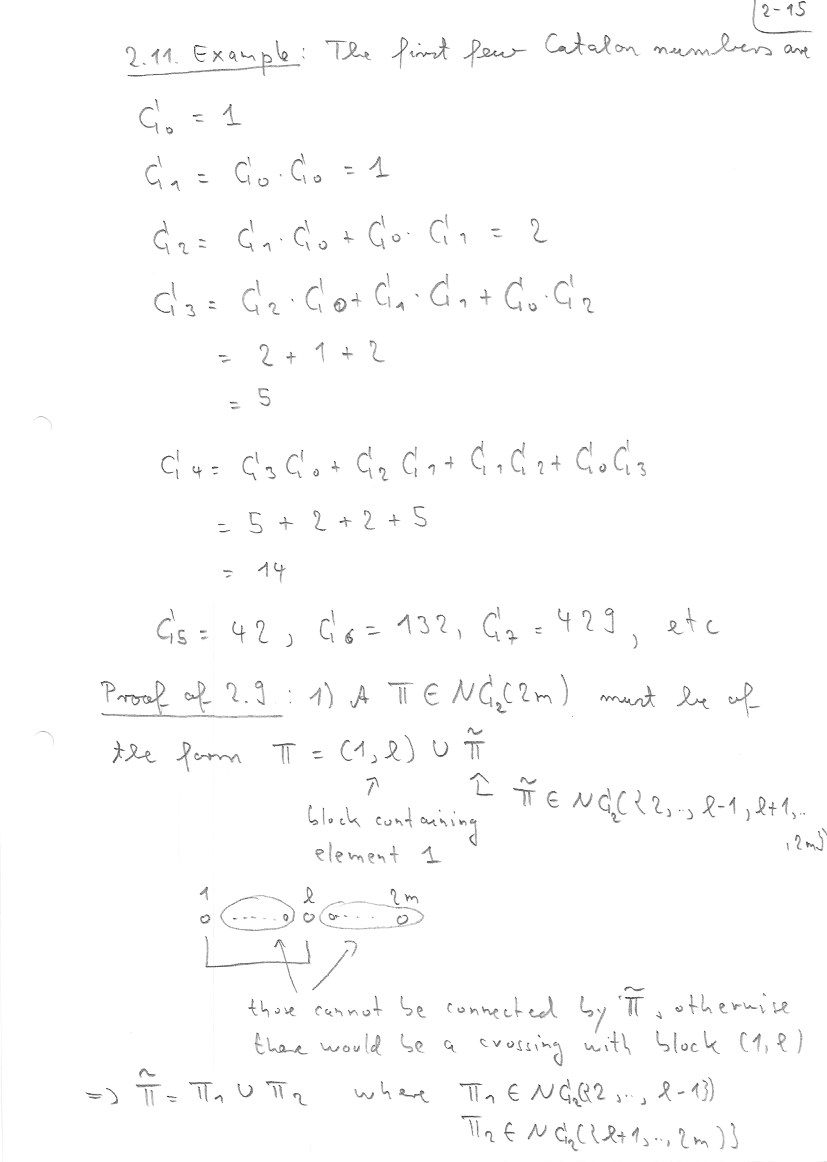 2-15
2.11. Example: The first few Catalan numbers are
C₀ = 1
C₁ = C₀ · C₀ = 1
C₂ = C₁ · C₀ + C₀ · C₁ = 2
C₃ = C₂ · C₀ + C₁ · C₁ + C₀ · C₂
= 2 + 1 + 2
= 5
C₄ = C₃ C₀ + C₂ C₁ + C₁ C₂ + C₀ C₃
= 5 + 2 + 2 + 5
= 14
C₅ = 42, C₆ = 132, C₇ = 429, etc
Proof of 2.9: 1) A π ∈ NC₂(2m) must be of
the form π = (1, l) ∪ π̃
↗ ↑ π̃ ∈ NC₂({2,.., l-1, l+1,..
block containing
, 2m}
element 1
1 l 2m
those cannot be connected by π̃, otherwise
there would be a crossing with block (1, l)
=> π̃ = π₁ ∪ π₂ where π₁ ∈ NC₂({2,.., l-1})
π₂ ∈ NC₂({l+1,.., 2m)}